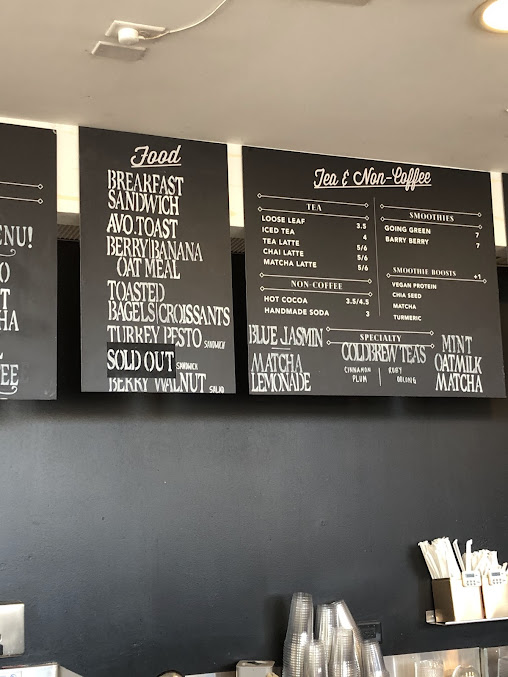 ENU!
O
T
HA
EE
Food
BREAKFAST
SANDWICH
AVO.TOAST
BERRY|BANANA
OAT MEAL
TOASTED
BAGELS|CROISSANTS
TURKEY PESTO SANDWICH
SOLD OUT SANDWICH
BERRY WALNUT SALAD
Tea & Non-Coffee
TEA
LOOSE LEAF 3.5
ICED TEA 4
TEA LATTE 5/6
CHAI LATTE 5/6
MATCHA LATTE 5/6
NON-COFFEE
HOT COCOA 3.5/4.5
HANDMADE SODA 3
SMOOTHIES
GOING GREEN 7
BARRY BERRY 7
SMOOTHIE BOOSTS +1
VEGAN PROTEIN
CHIA SEED
MATCHA
TURMERIC
SPECIALTY
BLUE JASMIN
MATCHA
LEMONADE
COLDBREW TEA'S
CINNAMON | RUBY
PLUM | OOLONG
MINT
OATMILK
MATCHA